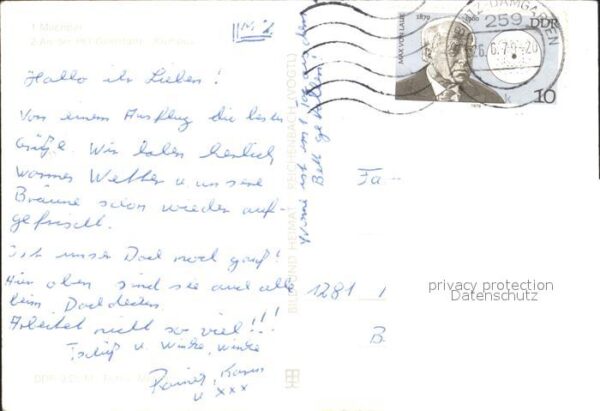 Hallo ihr Lieben!
Von einem Ausflug die besten
Grüße. Wir haben herrlich
warmes Wetter u. unsere
Bräune schon wieder auf-
gefrischt.
Ist unser Dach noch ganz?
Hier oben sind sie auch alle
beim Dachdecken.
Arbeitet nicht so viel!!!
Tschüß u. Winke, winke
Rainer, Karin
u xxx
Bett gefallen!
BILD UND HEIMAT REICHENBACH (VOGTL)
259
DDR
MAX VON LAUE
1879 1960
10
1979
Fa
1281
B.
privacy protection
Datenschutz